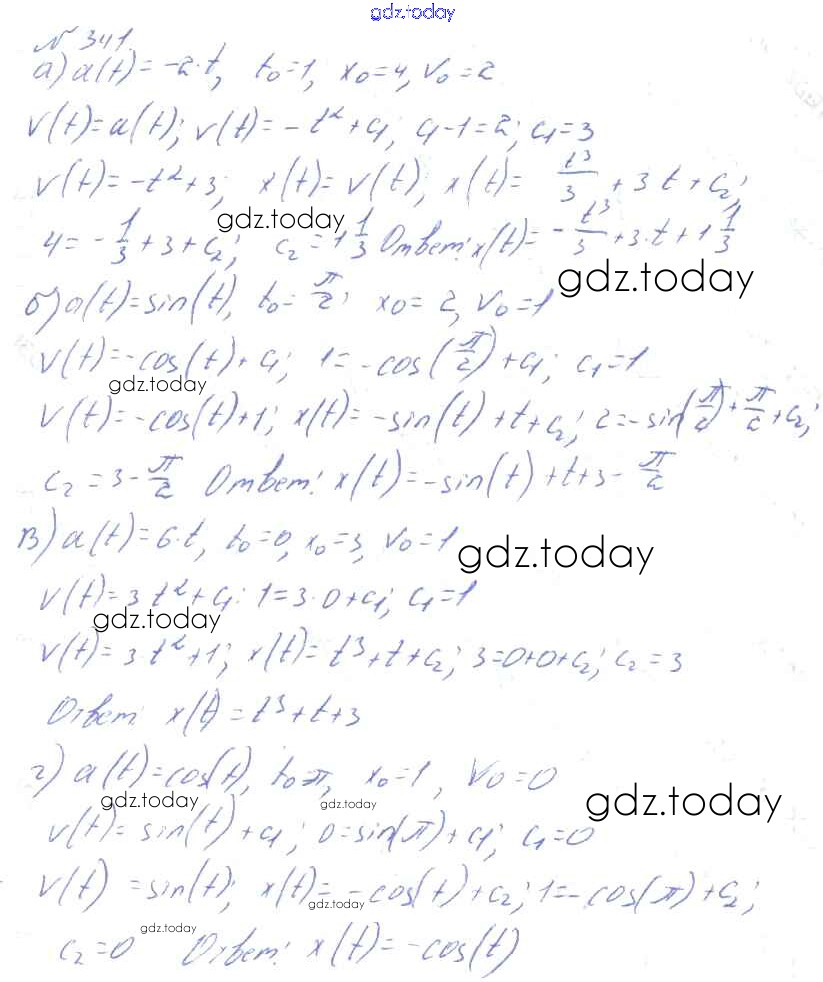 gdz.today
№ 341.
а) a(t) = -2·t, t₀=1, x₀=4, v₀=2
v(t)=a(t); v(t)= -t²+c₁; c₁-1=2; c₁=3
v(t)=-t²+3; x(t)=v(t), x(t)= t³/3 + 3t + c₂;
4=-1/3+3+c₂; c₂=1 1/3 Ответ: x(t)=-t³/3+3·t+1 1/3
gdz.today
gdz.today
б) a(t)=sin(t), t₀=π/2; x₀=2, v₀=1
v(t)=-cos(t)+c₁; 1=-cos(π/2)+c₁; c₁=1
gdz.today
v(t)=-cos(t)+1; x(t)=-sin(t)+t+c₂; 2=-sin(π/2)+π/2+c₂;
c₂=3-π/2 Ответ: x(t)=-sin(t)+t+3-π/2
в) a(t)=6·t, t₀=0, x₀=3, v₀=1
gdz.today
v(t)=3t²+c₁: 1=3·0+c₁; c₁=1
gdz.today
v(t)=3t²+1; x(t)=t³+t+c₂; 3=0+0+c₂; c₂=3
Ответ: x(t)=t³+t+3
г) a(t)=cos(t), t₀=π, x₀=1, v₀=0
gdz.today gdz.today gdz.today
v(t)=sin(t)+c₁; 0=sin(π)+c₁; c₁=0
v(t)=sin(t); x(t)=-cos(t)+c₂; 1=-cos(π)+c₂;
gdz.today
gdz.today
c₂=0 Ответ: x(t)=-cos(t)